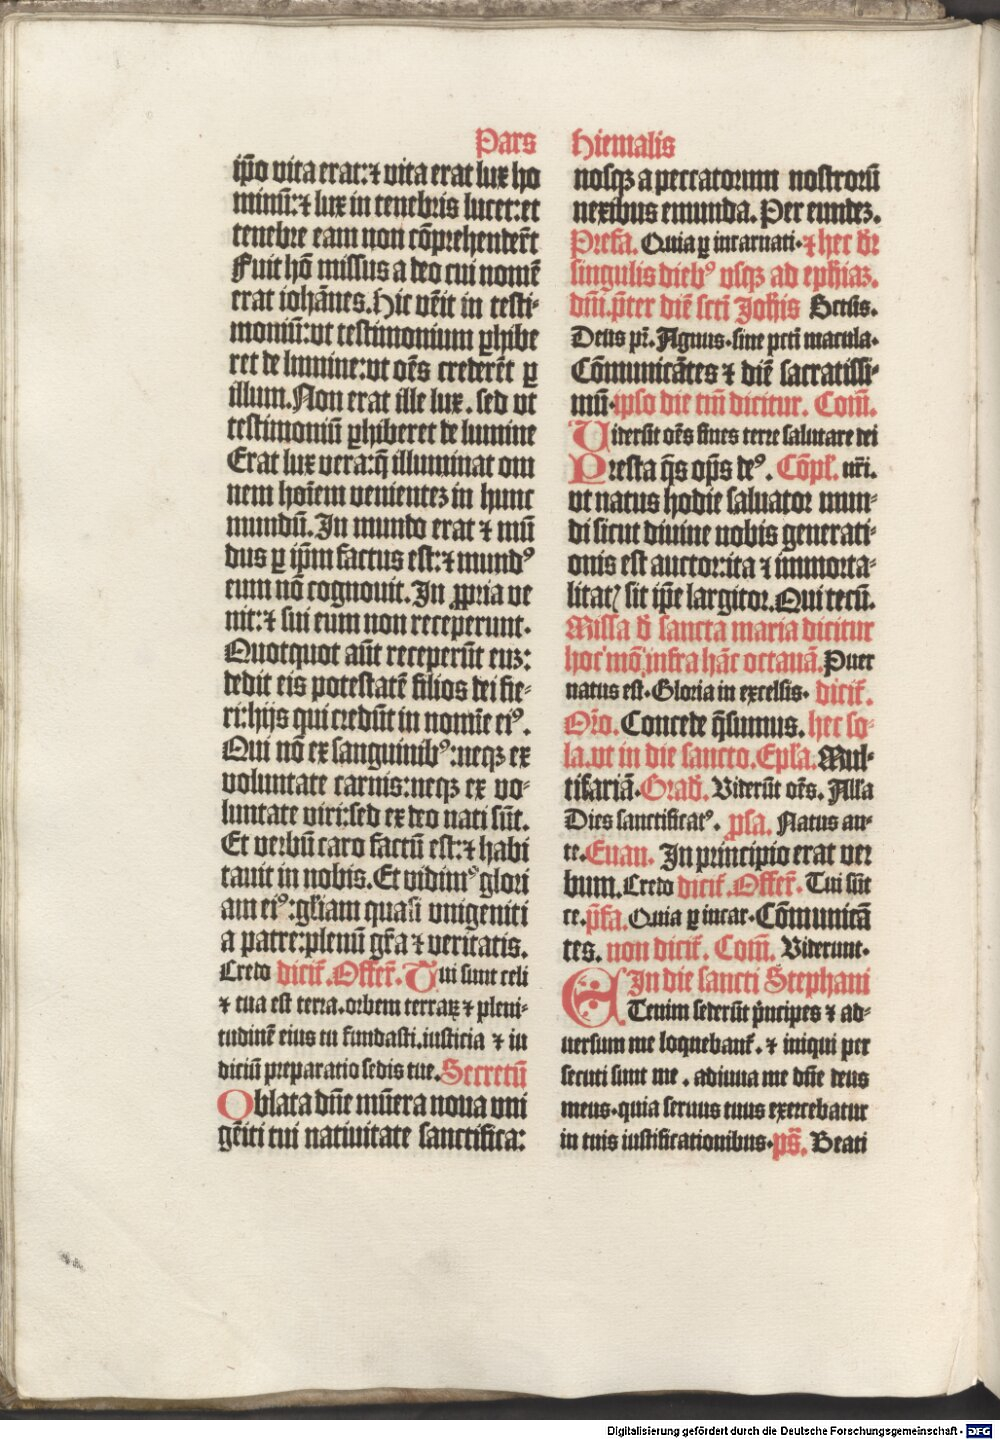 Pars Hiemalis
ip̄o vita erat:⁊ vita erat lux ho
minū:⁊ lux in tenebris lucet:et
tenebre eam non cōprehenderūt
Fuit hō missus a deo cui nomē
erat iohānes.Hic vēit in testi-
moniū:vt testimonium ꝑhibe
ret de lumine:vt oēs crederēt ꝑ
illum.Non erat ille lux. sed vt
testimoniū ꝑhiberet de lumine
Erat lux vera:q̄ illuminat om
nem hoīem venientez in hunc
mundū.In mundo erat ⁊ mū
dus ꝑ ip̄m factus est:⁊ mundꝰ
eum nō cognouit.In ꝓpria ve
nit:⁊ sui eum non receperunt.
Quotquot aūt receperūt euz:
dedit eis potestatē filios dei fie-
ri:hijs qui credūt in nomīe eiꝰ.
Qui nō ex sanguinibꝰ:neqꝫ ex
voluntate carnis:neqꝫ ex vo-
luntate viri:sed ex deo nati sūt.
Et verbū caro factū est:⁊ habi
tauit in nobis.Et vidimꝰ glori
am eiꝰ:gl̄iam quasi vnigeniti
a patre:plenū gr̄a ⁊ veritatis.
Credo dicit̄.Offer̄.Tui sunt celi
⁊ tua est terra.orbem terraꝝ ⁊ pleni-
tudinē eius tu fundasti.iusticia ⁊ iu
diciū preparatio sedis tue.Secretū
Oblata dn̄e mūera noua vni
gēiti tui natiuitate sanctifica:
nosqꝫ a peccatorum nostrorū
nexibus emunda. Per eundez.
Prefa. Quia ꝑ incarnati.⁊ hec dr̄
singulis diebꝰ vsqꝫ ad eph̄iaz.
dn̄i.p̄ter diē sc̄ti Joh̄is Sctūs.
Deus pr̄. Agnus.sine pctī macula.
Cōmunicātes ⁊ diē sacratissi-
mū.ipso die tm̄ dicitur. Com̄.
Viderūt oēs fines terre salutare dei
Presta q̄s op̄s deꝰ. Cōpl̄. nr̄i.
vt natus hodie saluator mun-
di sicut diuine nobis generati-
onis est auctor:ita ⁊ immorta-
litatꝭ sit ip̄e largitor.Qui tecū.
Missa d̄ sancta maria dicitur
hoc mō infra hāc octauā.Puer
natus est.Gloria in excelsis. dicit̄.
Or̄o. Concede q̄sumus. hec so-
la.vt in die sancto.Ep̄la.Mul-
tifariā.Grad̄. Viderūt oēs. Alla
Dies sanctificatꝰ. psa. Natus an-
te.Euan. In principio erat ver
bum.Credo dicit̄.Offer̄. Tui sūt
ce.p̄fa.Quia ꝑ incar.Cōmunicā
tes. non dicit̄. Com̄. Viderunt.
In die sancti Stephani
Etenim sederūt p̄ncipes ⁊ ad-
uersum me loquebant̄. ⁊ iniqui per
secuti sunt me. adiuua me dn̄e deus
meus.quia seruus tuus exercebatur
in tuis iustificationibus.ps̄. Beati
Digitalisierung gefördert durch die Deutsche Forschungsgemeinschaft - DFG